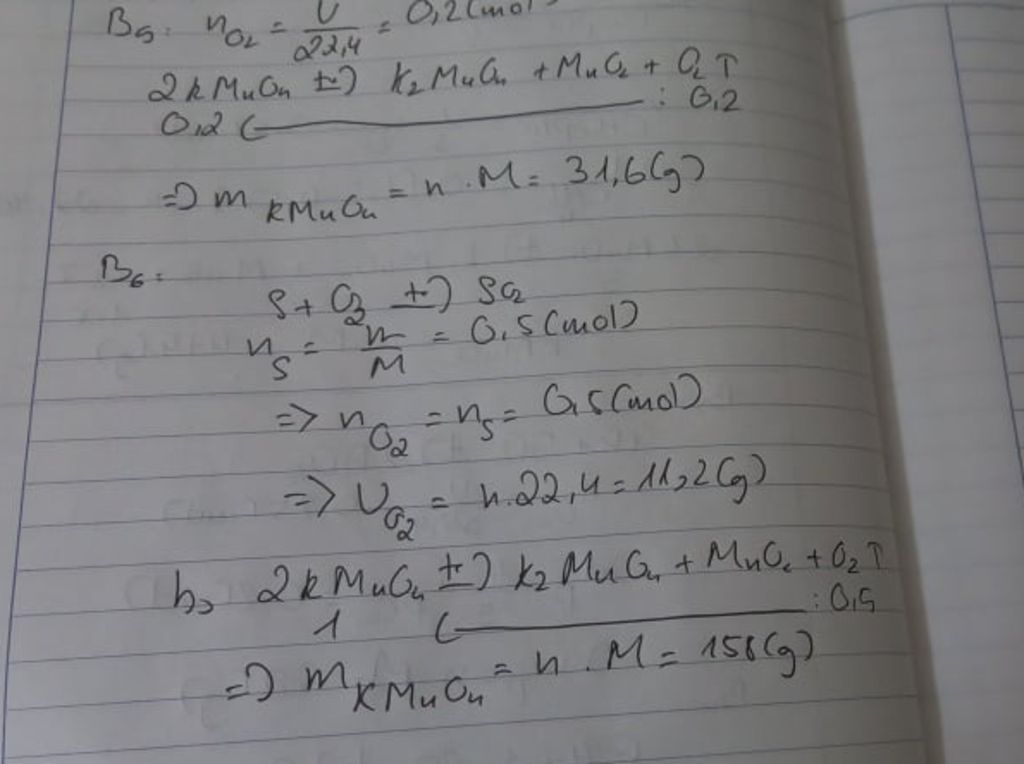 B5: nO2 = V/22,4 = 0,2(mol)
2KMnO4 t→ K2MnO4 + MnO2 + O2 ↑
0,2 ← : 0,2
=> m KMnO4 = n . M = 31,6(g)
B6:
S + O2 t→ SO2
nS = m/M = 0,5(mol)
=> nO2 = nS = 0,5(mol)
=> VO2 = n.22,4 = 11,2(g)
b, 2KMnO4 t→ K2MnO4 + MnO2 + O2 ↑
1 ← : 0,5
=> m KMnO4 = n . M = 158(g)